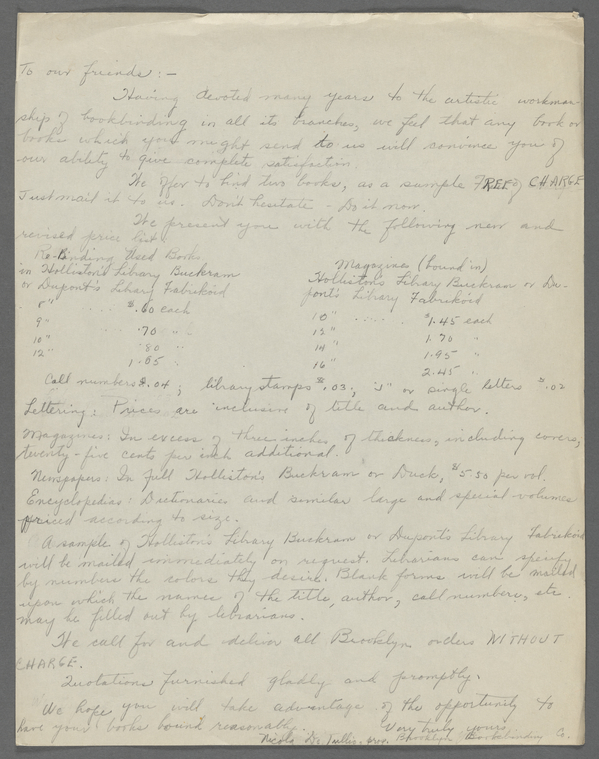 To our friends:-
Having devoted many years to the artistic workman-
ship of bookbinding in all its branches, we feel that any book or
books which you might send to us will convince you of
our ability to give complete satisfaction.
We offer to bind two books, as a sample FREE of CHARGE
Just mail it to us. Don't hesitate - Do it now.
We present you with the following new and
revised price list:
Re-Binding Used Books
in Holliston's Library Buckram
or Dupont's Library Fabrikoid
8" .... $.60 each
9" .70 "
10" .80 "
12" 1.05
Magazines (bound in)
Holliston's Library Buckram or Du-
pont's Library Fabrikoid
10" ..... $1.45 each
12" 1.70 "
14" 1.95 "
16" 2.45 "
Call numbers $.04; library stamps $.03; "J" or single letters $.02
Lettering: Prices are inclusive of title and author.
Magazines: In excess of three inches of thickness, including covers,
twenty-five cents per inch additional.
Newspapers: In full Holliston's Buckram or Duck, $5.50 per vol.
Encyclopedias: Dictionaries and similar large and special volumes
priced according to size.
A sample of Holliston's Library Buckram or Dupont's Library Fabrikoid
will be mailed immediately on request. Librarians can specify
by numbers the colors they desire. Blank forms will be mailed
upon which the names of the title, author, call numbers, etc.
may be filled out by librarians.
We call for and deliver all Brooklyn orders WITHOUT
CHARGE.
Quotations furnished gladly and promptly.
We hope you will take advantage of the opportunity to
have your books bound reasonably. Very truly yours
Nicola De Tullio, prop. Brooklyn Bookbinding Co.